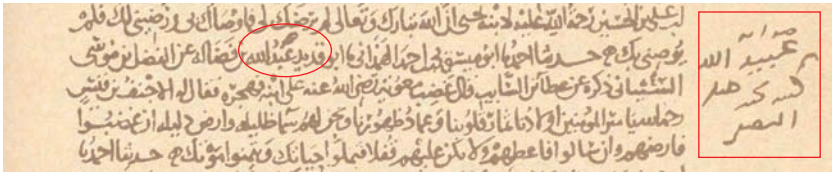 الحسين رحمة الله عليه لابنه يا بني ان الله تبارك وتعالى لم يرضك لي فاوصاك بي ورضيني لك فلم
يوصني بك ه حدثنا احمد نا ابو قديد عبيد الله بن فضالة عن الفضل بن موسى
السيناني ذكره عن عطا بن السايب قال غضب معوية رضي الله عنه على ابنه فهجره فقال له الاحنف بن قيس
يا امير المومنين اولادنا ثمار قلوبنا وعماد ظهورنا ونحن لهم سما ظليله وارض ذليله ان غضبوا
فارضهم وان سالوا فاعطهم ولا تكن عليهم قفلا فيملوا حياتك ويتمنوا موتك ه حدثنا احمد نا
عبيد الله